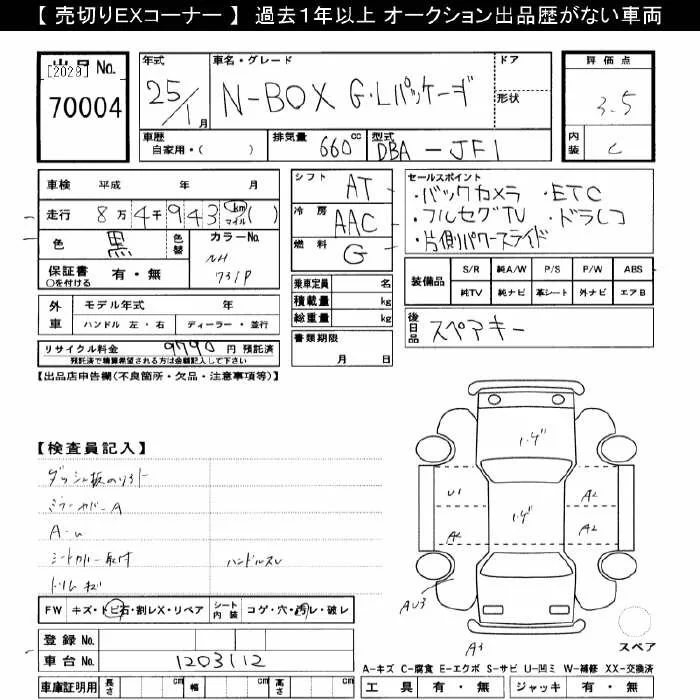 【 売切りEXコーナー 】 過去1年以上 オークション出品歴がない車両
出品No.
[2029]
70004
年式
25/1月
車名・グレード
N-BOX G・Lパッケージ
ドア
形状
評価点
3.5
内装
C
車歴
自家用・( )
排気量
660cc
型式
DBA - JF1
車検 平成 年 月
走行 8万4千943 km マイル ( )
色 黒 色替
カラーNo.
NH
731P
保証書 有・無
○を付ける
外車
モデル年式 年
ハンドル 左・右 ディーラー・並行
リサイクル料金 9790 円 預託済
預託済で精算希望される方は金額記入して下さい
【出品店申告欄(不良箇所・欠品・注意事項等)】
シフト AT
冷房 AAC
燃料 G
乗車定員 名
積載量 kg
総重量 kg
書類期限
月 日
セールスポイント
・バックカメラ ・ETC
・フルセグTV ・ドラレコ
・片側パワースライド
装備品
S/R 純A/W P/S P/W ABS
純TV 純ナビ 革シート 外ナビ エアB
後日品
スペアキー
【検査員記入】
ミラーカバーA
A-U
シートカバー取付
ハンドルスレ
トリムキズ
FW キズ・トビ石・割レX・リペア
シート内装 コゲ・穴・汚レ・破レ
登録No.
車台No. 1203112
車庫証明用 長さ cm 幅 cm 高さ cm
U1
A2
A2
A2
AU3
A3
スペア
A-キズ C-腐食 E-エクボ S-サビ U-凹ミ W-補修 XX-交換済
工具 有・無 ジャッキ 有・無